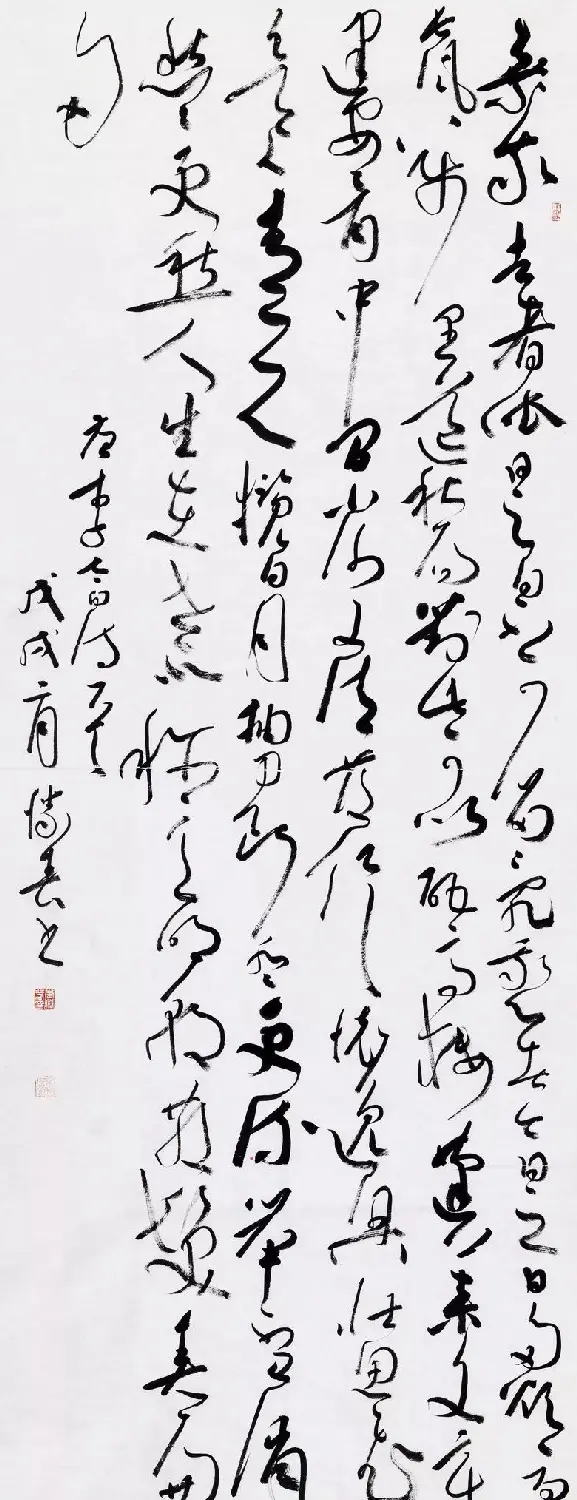 棄我去者昨日之日不可留亂我心者今日之日多煩憂長
風萬里送秋雁對此可以酣高樓蓬萊文章
建安骨中間小謝又清發俱懷逸興壯思飛
欲上青天攬日月抽刀斷水水更流舉杯消
愁愁更愁人生在世不稱意明朝散髮弄扁
舟
唐李白詩一首
戊戌月春書